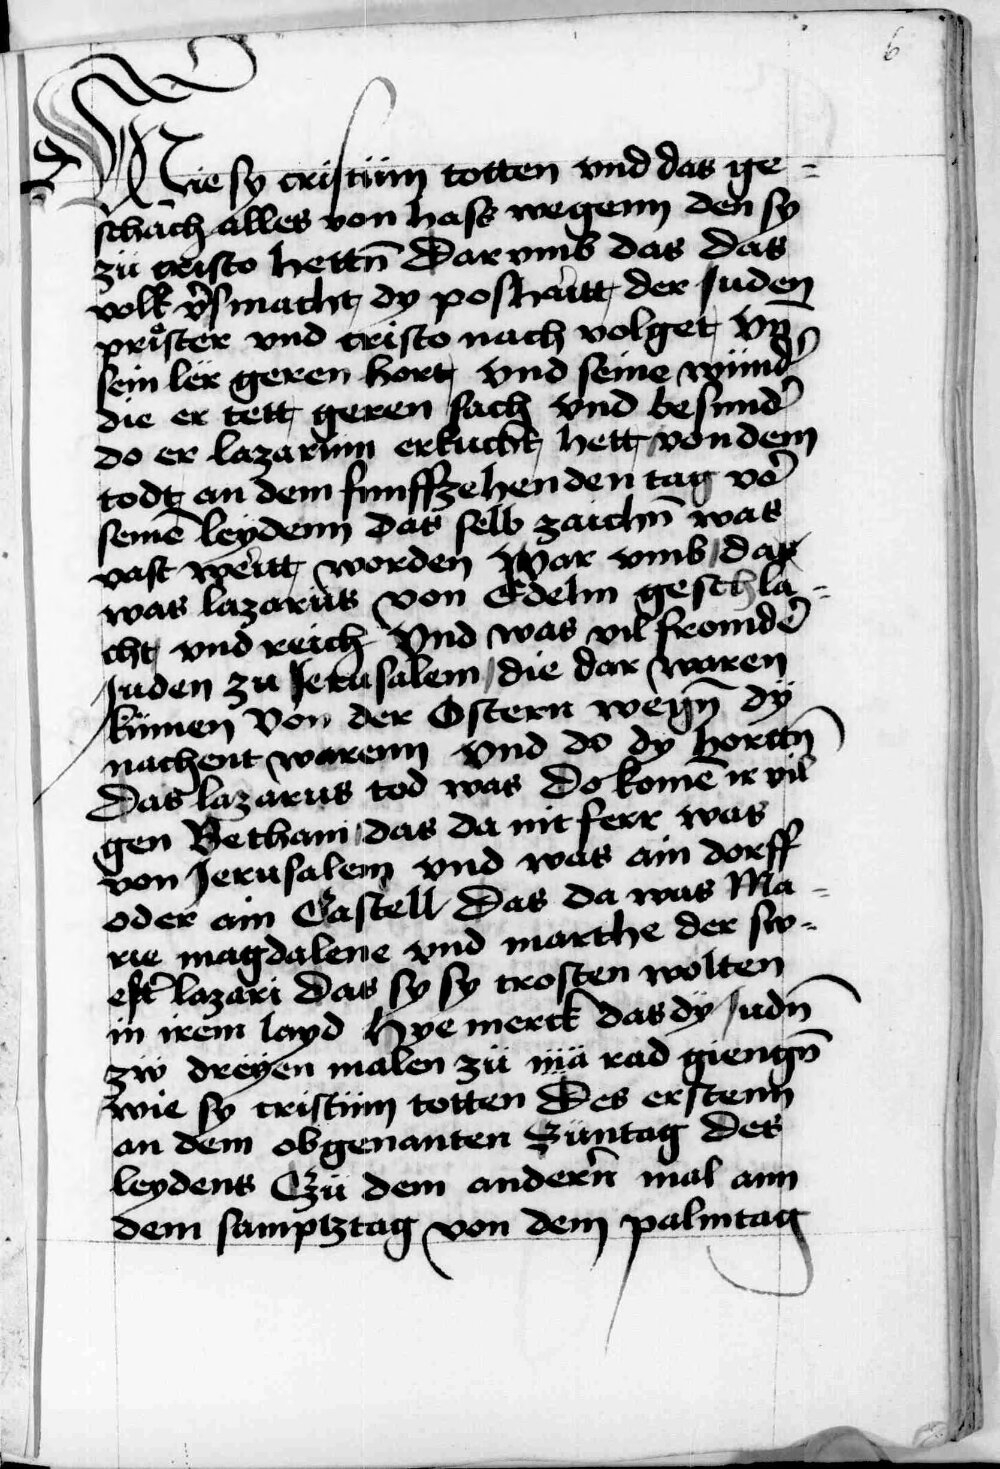 6
Wie sy cristum totten vnd das ge=
schach alles von hass wegenn den sy
zü cristo hettn̄ Dar vmb das das
volk v̾smacht dy poshaitt der Juden
priͦster vnd cristo nach volget Vn̄
sein ler geren hort vnd seine wund̾
die er tett geren sach vnd besund̾
do er lazarum erkuckt hett von dem
todt an dem funffzehenden tag vo̾
seinē leydenn Das selb zaichn̄ was
vast weitt worden War vmb das
was lazarus von Edelm geschla=
cht vnd reich Vnd was vil fromde̾
Juden zu Jerusalem die dar waren
kumen Von der Ostern wegn̄ dÿ
nachent warenn vnd do dy hortn̄
Das lazarus tod was Do komē ir vil
gen Bethani das da nit ferr was
von Jerusalem vnd was ain dorff
oder ain Castell Das da was Ma=
rie magdalene vnd marthe der sw=
est̾ lazari Das sy sy trosten wolten
in irem layd Hye merck das dÿ Judn̄
zw dreyen malen zü rad giengn̄
wie sy cristum totten Des erstenn
an dem obgenanten Suntag Des
leydens Czü dem andern̄ mal ann
dem sampztag von dem palmtag